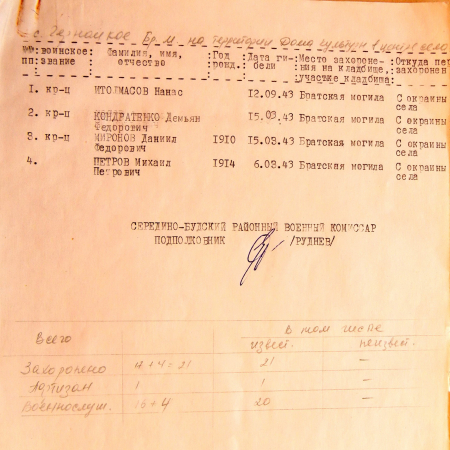 с. Бр. М. на территории Дома культуры в центре села
№№ воинское: Фамилия, имя, Год Дата ги- Место захороне- Откуда пе
пп: звание отчество рожд. бели ния на кладбище, захоронен
участке кладбища:
1. кр-ц ИТОЛМАСОВ Нанас 12.09.43 Братская могила С окраины
села
2. кр-ц КОНДРАТЕНКО Демьян 15.03.43 Братская могила С окраины
Федорович села
3. кр-ц МИРОНОВ Даниил 1910 15.03.43 Братская могила С окраины
Федорович села
4. ПЕТРОВ Михаил 1914 6.03.43 Братская могила С окраины
Петрович села
СЕРЕДИНО-БУДСКИЙ РАЙОННЫЙ ВОЕННЫЙ КОМИССАР
ПОДПОЛКОВНИК /РУДНЕВ/
Всего в том числе
извест. неизвест.
Захоронено 17+4=21 21 —
Партизан 1 1 —
Военнослуж. 16+4 20 —